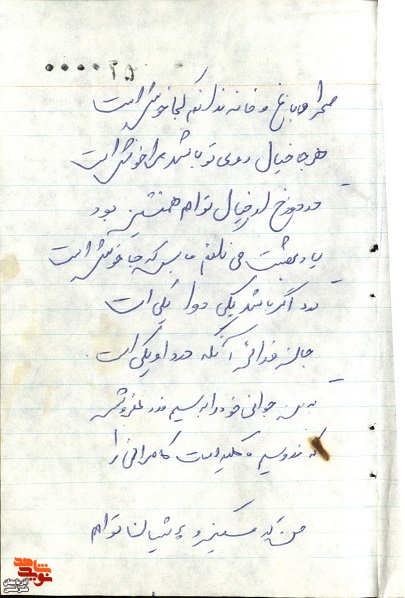 ۰۰۰۰۲۵
صحرا و باغ و خانه ندانم کجا خوش است
هر جا خیال روی تو باشد مرا خوش است
در دوزخ ار خیال توام همنشین بود
یاد بهشت می نکنم بس که جا خوش است
درد اگر باشد یکی دوا یکی است
جان فدای آنکه درد او یکی است
جوانی خود را به سیم و زر مفروش
که زر و سیم کلید است کامرانی را
من که مسکین و توام
شاهد
نوید